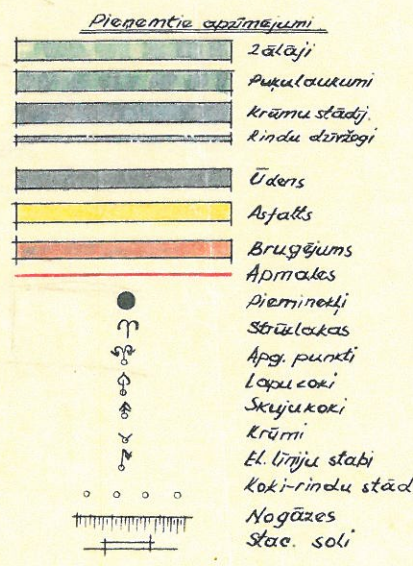 Pieņemtie apzīmējumi
Zālāji
Puķulaukumi
Krūmu stādīj.
Rindu dzīvžogi
Ūdens
Asfalts
Bruģējums
Apmales
Pieminekļi
Strūklakas
Apg. punkti
Lapu coki
Skuju koki
Krūmi
El. līniju stabi
Koki-rindu stād
Nogāzes
Stac. soli